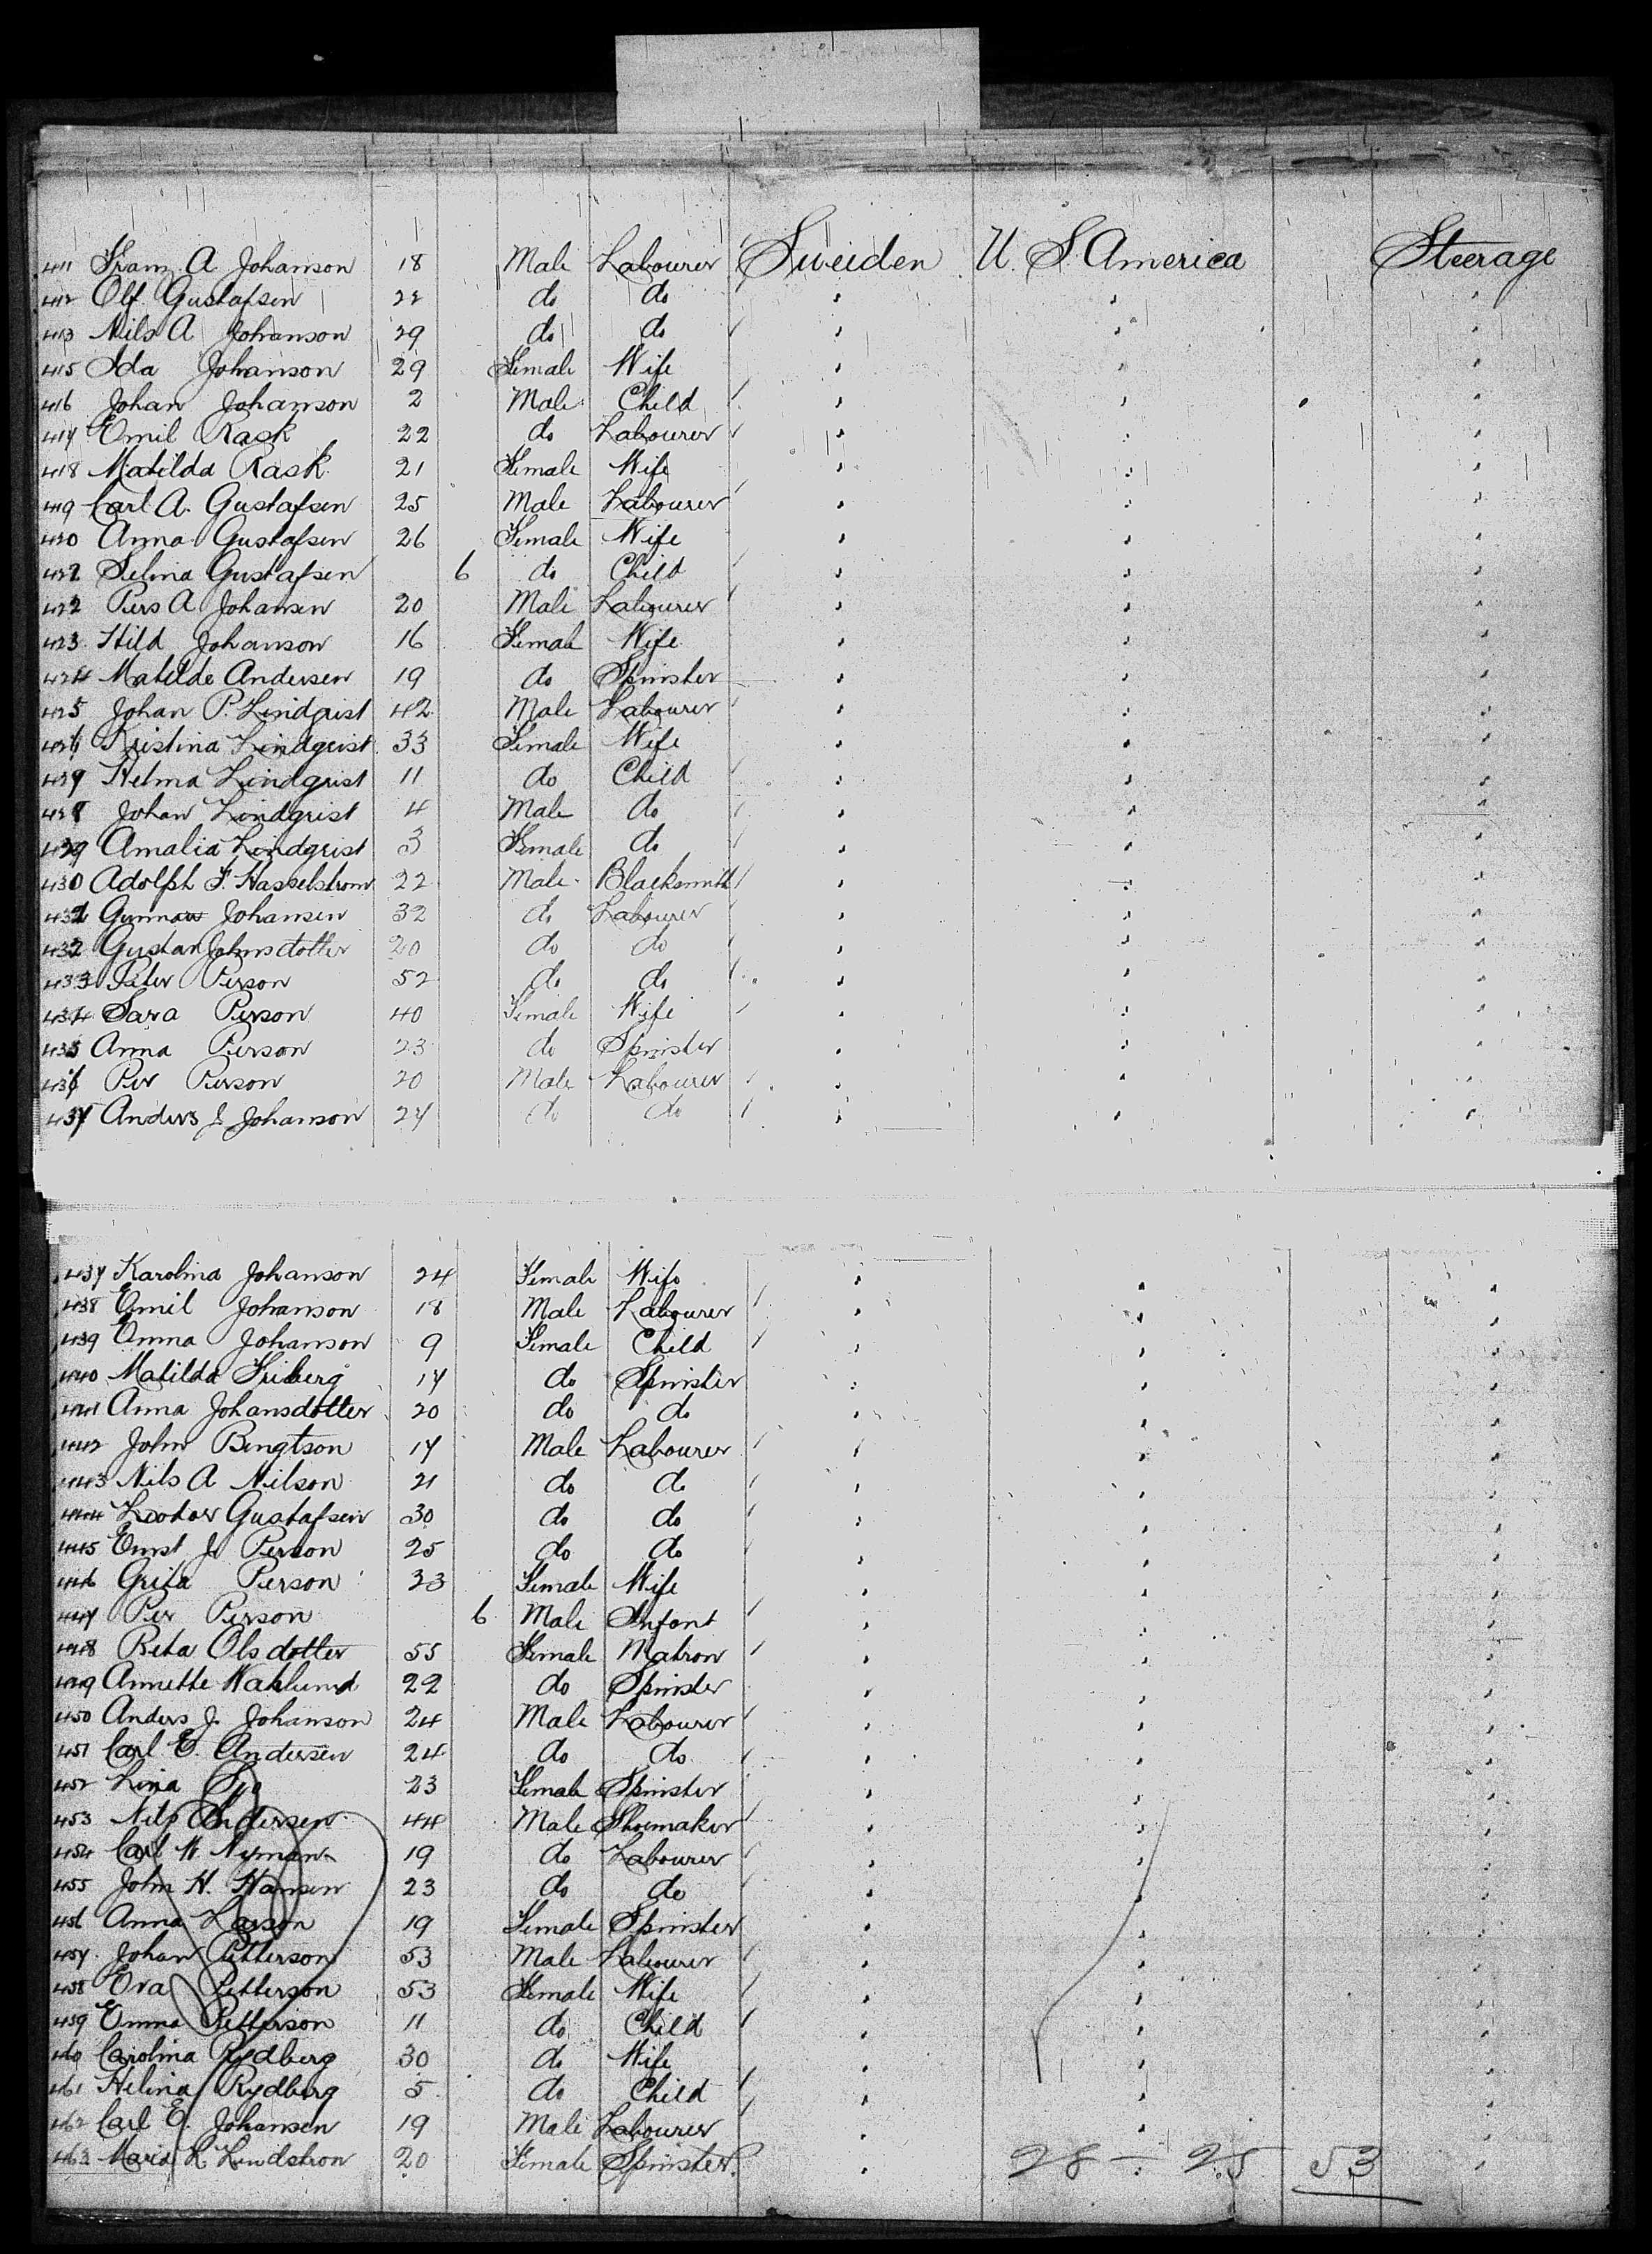 411 Franz A Johanson 18 Male Labourer Sweiden U. S. America Steerage
412 Olf Gustafsen 22 do do " " "
413 Nils A Johanson 29 do do " " "
415 Ida Johanson 29 Female Wife " " "
416 Johan Johanson 2 Male Child " " "
417 Emil Rask 22 do Labourer " " "
418 Matilda Rask 21 Female Wife " " "
419 Carl A. Gustafsen 25 Male Labourer " " "
420 Anna Gustafsen 26 Female Wife " " "
421 Selina Gustafsen 6 do Child " " "
422 Pers A Johansen 20 Male Labourer " " "
423 Hild Johanson 16 Female Wife " " "
424 Matilde Andersen 19 do Spinster " " "
425 Johan P. Lindqrist 42 Male Labourer " " "
426 Kristina Lindqrist 33 Female Wife " " "
427 Helma Lindqrist 11 do Child " " "
428 Johan Lindqrist 4 Male do " " "
429 Amalia Lindqrist 3 Female do " " "
430 Adolph F. Hasselstrom 22 Male Blacksmith " " "
431 Gunnar Johansen 32 do Labourer " " "
432 Gustan Johnsdotter 20 do do " " "
433 Peter Person 52 do do " " "
434 Sara Person 40 Female Wife " " "
435 Anna Person 23 do Spinster " " "
436 Per Person 20 Male Labourer " " "
437 Anders J. Johanson 27 do do " " "
437 Karolina Johanson 24 Female Wife " " "
438 Emil Johanson 18 Male Labourer " " "
439 Emma Johanson 9 Female Child " " "
440 Matilda Friberg 17 do Spinster " " "
441 Anna Johansdotter 20 do do " " "
442 John Bengtson 17 Male Labourer " " "
443 Nils A Nilson 21 do do " " "
444 Gustafsen 30 do do " " "
445 Ernst J. Person 25 do do " " "
446 Grita Person 23 Female Wife " " "
447 Per Person 6 Male Infant " " "
448 Reta Olsdotter 55 Female Matron " " "
449 Annette Wahlund 22 do Spinster " " "
450 Anders J. Johanson 24 Male Labourer " " "
451 Carl E. Andersen 24 do do " " "
452 Lina 23 Female Spinster " " "
453 Nils Andersen 44 Male Shoemaker " " "
454 Carl W. Nyman 19 do Labourer " " "
455 John H. Hansen 23 do do " " "
456 Anna Larson 19 Female Spinster " " "
457 Johan Petterson 53 Male Labourer " " "
458 Eva Petterson 53 Female Wife " " "
459 Emma Petterson 11 do Child " " "
460 Carolina Rydberg 30 do Wife " " "
461 Helina Rydberg 5 do Child " " "
462 Carl E. Johansen 19 Male Labourer " " "
463 Maria K Lindstron 20 Female Spinster " "
28 — 25 53